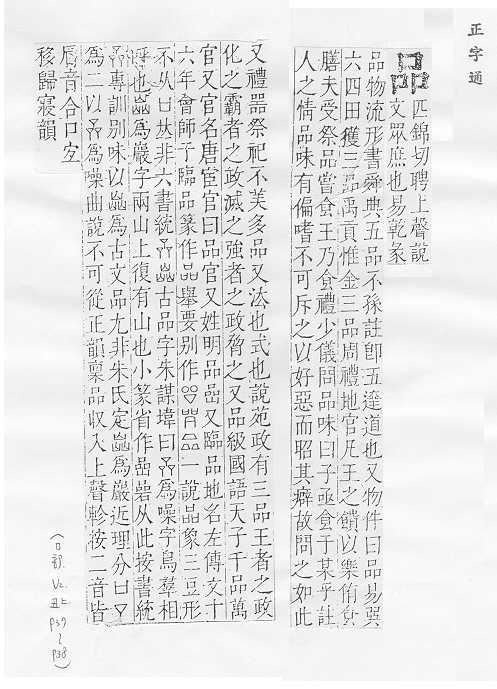 正字通
品
匹錦切聘上聲說
文眾庶也易乾彖
品物流形書舜典五品不孫註卽五達道也又物件曰品易巽
六四田獲三品禹貢惟金三品周禮地官凡王之饋以樂侑食
膳夫受祭品嘗食王乃食禮少儀問品味曰子亟食于某乎註
人之情品味有偏嗜不可斥之以好惡而昭其癖故問之如此
又禮器祭祀不美多品又法也式也說苑政有三品王者之政
化之霸者之政滅之強者之政脅之又品級國語天子千品萬
官又官名唐宦官曰品官又姓明品嵒又臨品地名左傳文十
六年會師于臨品篆作品舉要別作 一說品象三豆形
不从口 非六書統 古品字朱謀㙔曰 爲噪字鳥羣相
呼也 爲巖字兩山上復有山也小篆省作嵒碞从此按書統
專訓別味以 爲古文品尤非朱氏定 爲巖近理分 品
爲二以 爲噪曲說不可從正韻稟品收入上聲軫按二音皆
唇音合口宜
移歸寢韻
(口部 V2
丑上
P37
~
P38)